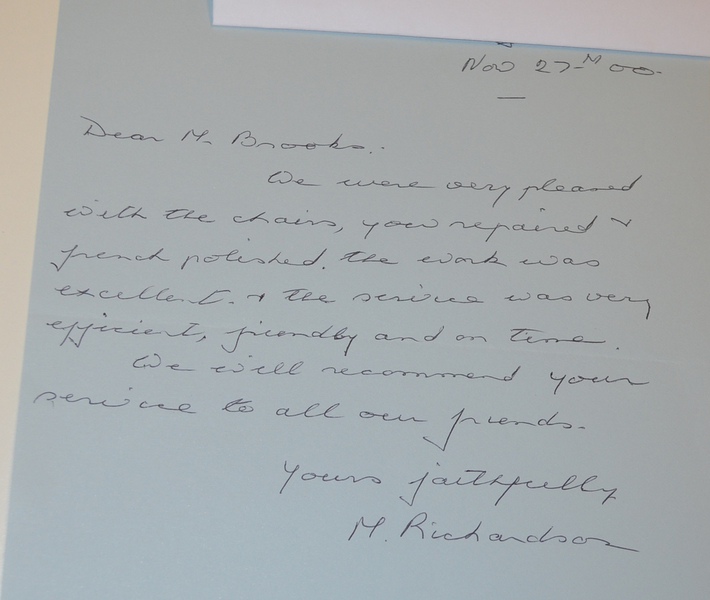 Nov 27th 00.
Dear Mr Brooks.
We were very pleased
with the chairs, you repaired &
french polished. the work was
excellent. & the service was very
efficient, friendly and on time.
We will recommend your
service to all our friends.
Yours faithfully
M. Richardson